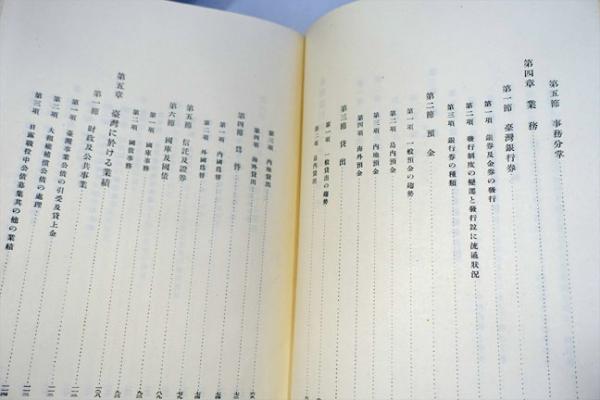 第五節 事務分掌
第四章 業務
第一節 臺灣銀行券
第一項 銀券及金券の發行
第二項 發行制度の變遷と發行竝に流通狀況
第三項 銀行券の種類
第二節 預金
第一項 一般預金の趨勢
第二項 島內預金
第三項 內地預金
第四項 海外預金
第三節 貸出
第一項 一般貸出の趨勢
第二項 島內貸出
第三項 內地貸出
第四項 海外貸出
第四節 爲替
第一項 內國爲替
第二項 外國爲替
第五節 信託及證券
第六節 國庫及國債
第一項 國庫事務
第二項 國債事務
第五章 臺灣に於ける業績
第一節 財政及公共事業
第一項 臺灣事業公債の引受及貸上金
第二項 大租權補償公債の處理
第三項 日露戰役中公債募集其の他の業績